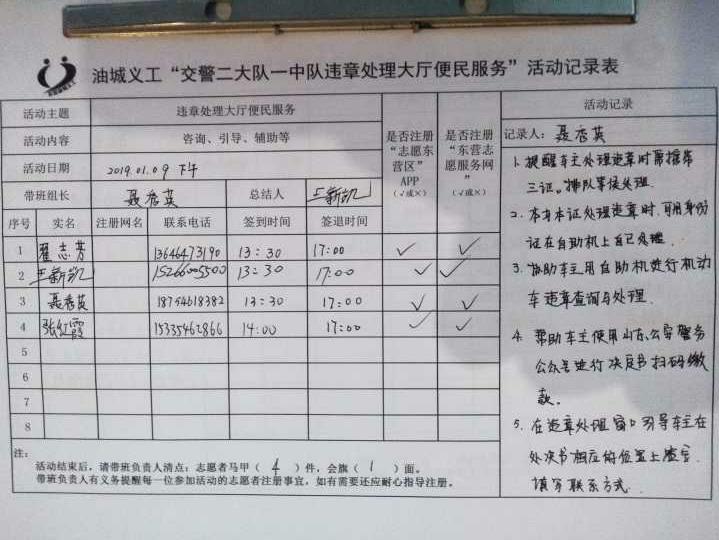 油城义工“交警二大队一中队违章处理大厅便民服务”活动记录表
活动主题 违章处理大厅便民服务
活动内容 咨询、引导、辅助等
活动日期 2019.01.09 下午
带班组长 聂秀英 总结人 王新凯
是否注册“志愿东营区”APP（√或×）
是否注册“东营志愿服务网”（√或×）
序号 实名 注册网名 联系电话 签到时间 签退时间
1 翟志芳 13646473190 13:30 17:00 ✓ ✓
2 王新凯 15266005500 13:30 17:00 ✓ ✓
3 聂秀英 18754618382 13:30 17:00 ✓ ✓
4 张红霞 15335462866 14:00 17:00 ✓ ✓
5
6
7
8
注：
活动结束后，请带班负责人清点：志愿者马甲（ 4 ）件，会旗（ 1 ）面。
带班负责人有义务提醒每一位参加活动的志愿者注册事宜，如有需要还应耐心指导注册。
活动记录
记录人：聂秀英
1. 提醒车主处理违章时需携带
三证。排队等候处理.
2. 本本证处理违章时,可用身份
证在自助机上自己处理.
3. 协助车主用自助机进行机动
车违章查询与处理.
4. 帮助车主使用山东公安警务
公众号进行决定书扫码缴
款。
5. 在违章处理窗口引导车主在
处决书相应的位置上签字.
填写联系方式.